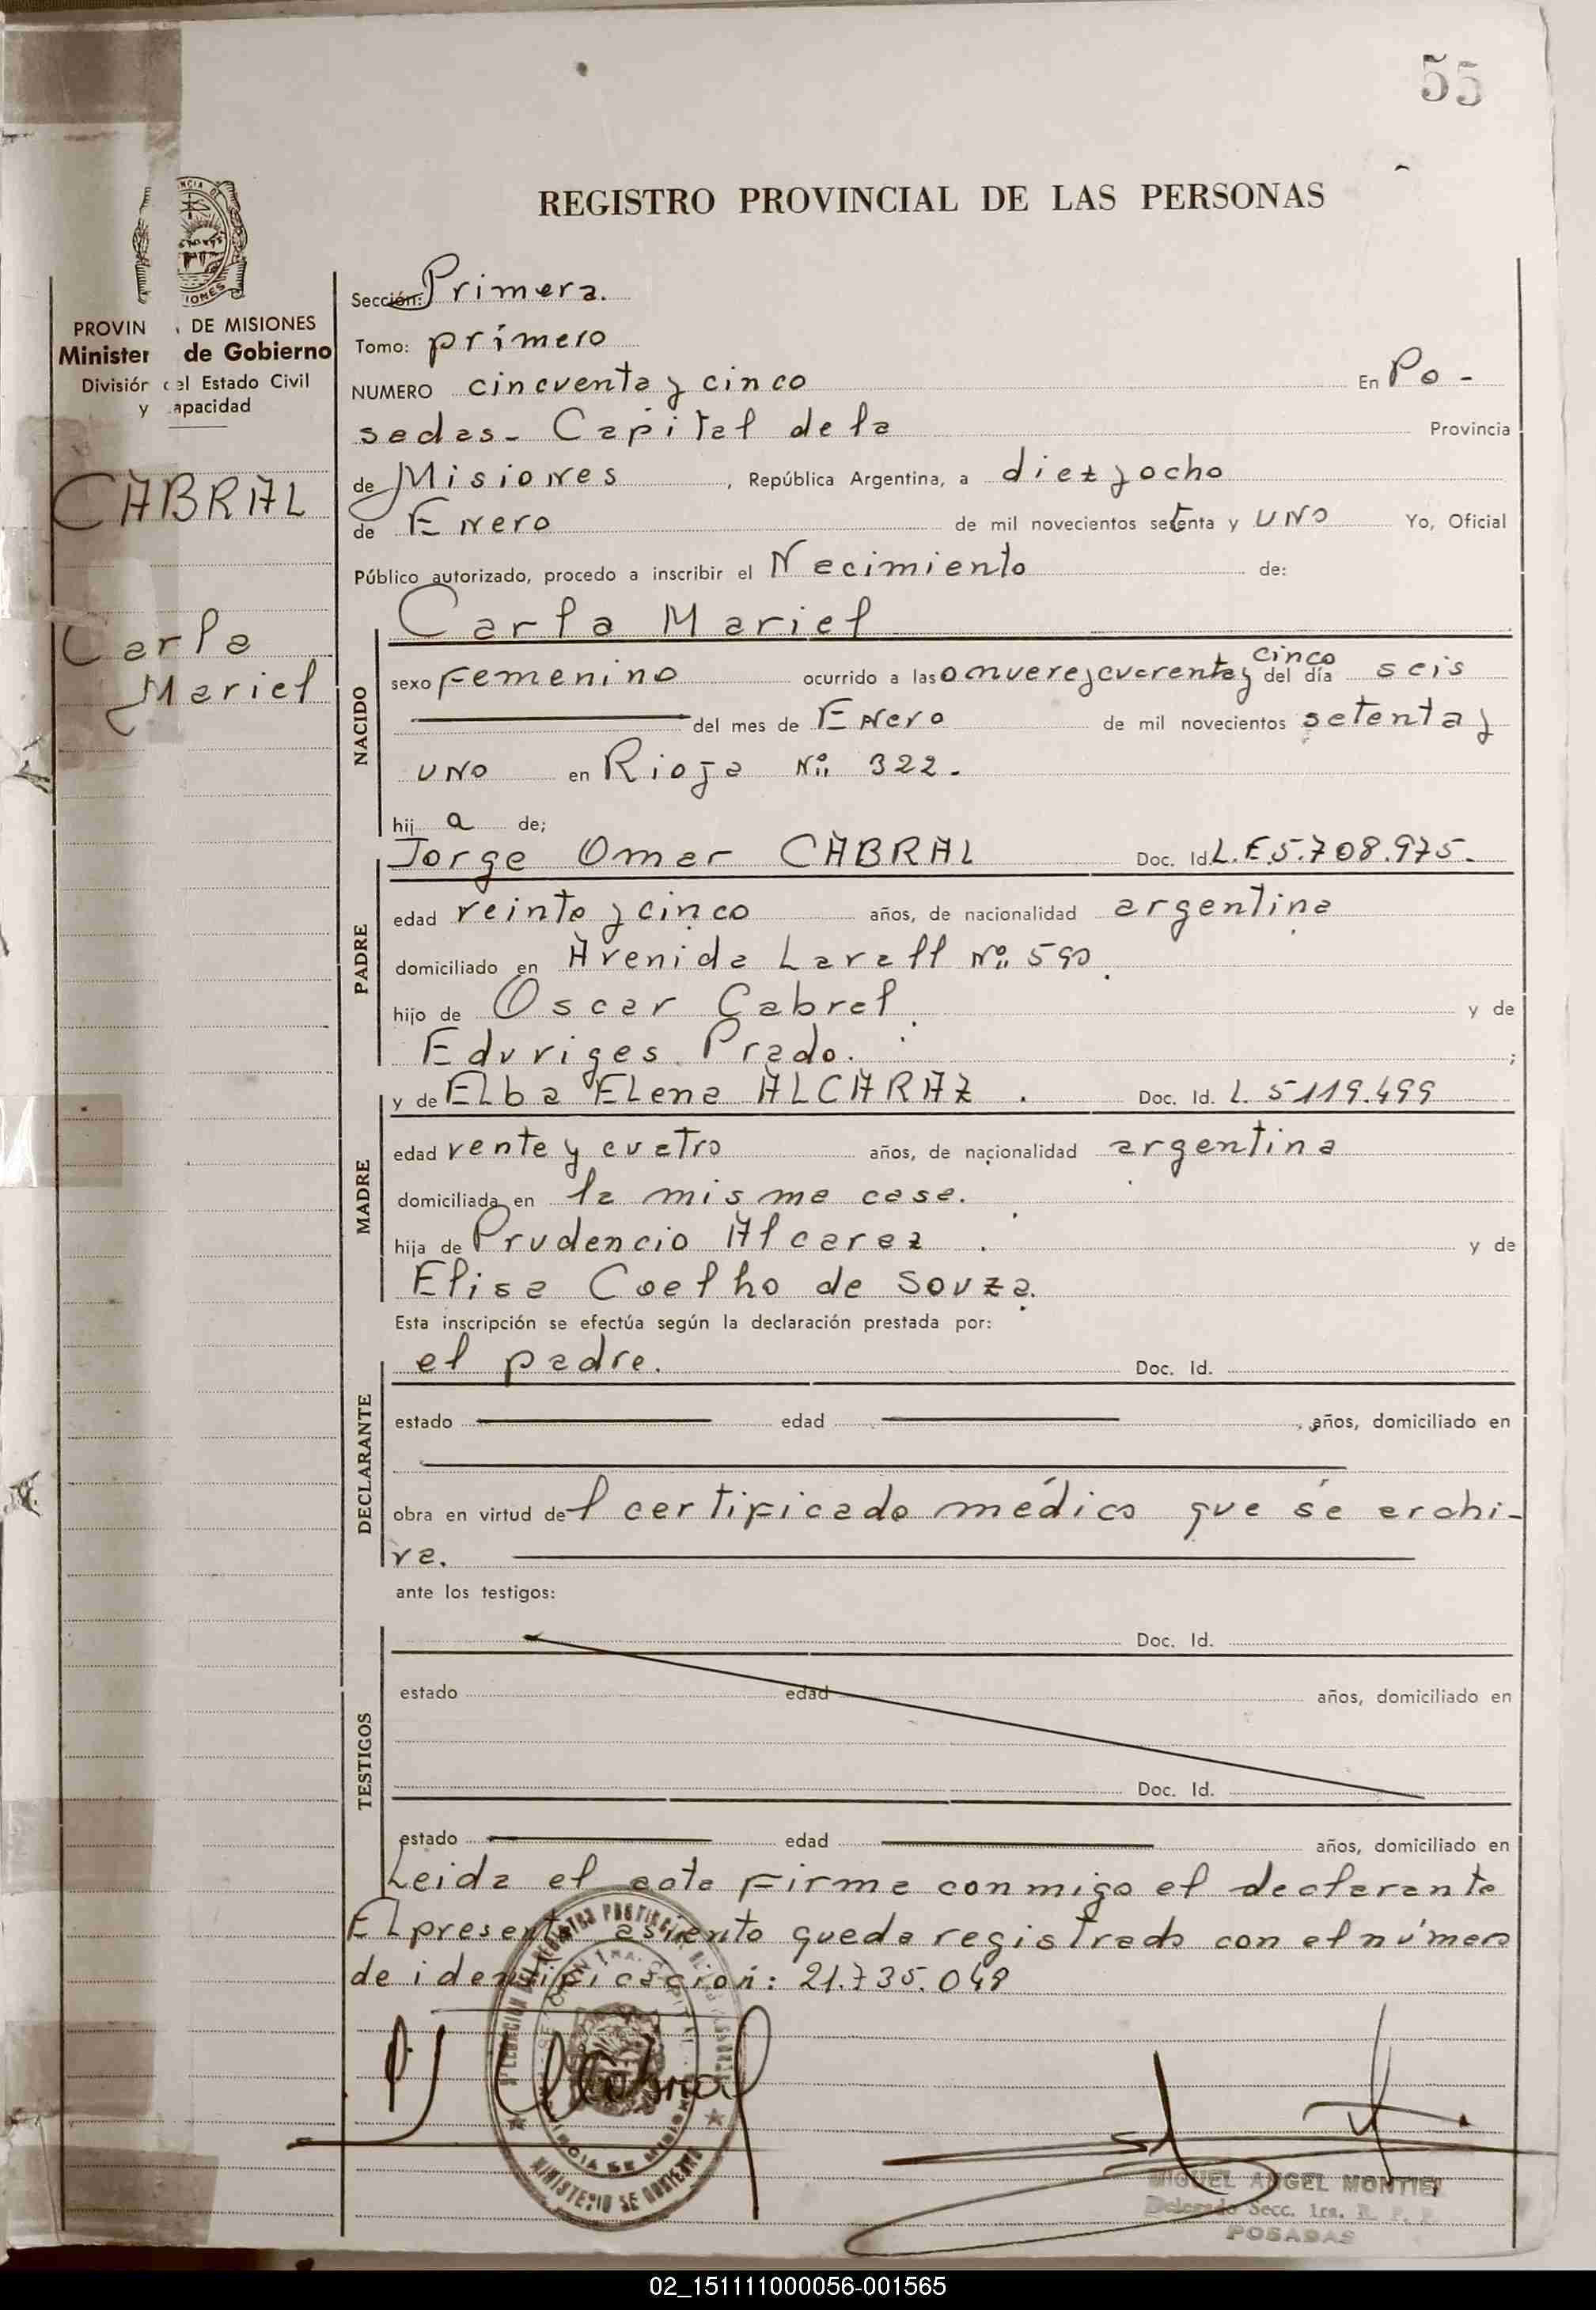 55
REGISTRO PROVINCIAL DE LAS PERSONAS
PROVIN DE MISIONES
Minister de Gobierno
División del Estado Civil
y apacidad
CABRAL
Carla
Mariel
Sección: Primera.
Tomo: primero
NUMERO cincuenta y cinco En Po-
sadas- Capital de la Provincia
de Misiones, República Argentina, a diez y ocho
de Enero de mil novecientos setenta y UNO Yo, Oficial
Público autorizado, procedo a inscribir el Nacimiento de:
Carla Mariel
NACIDO
sexo Femenino ocurrido a las 0 nueve y cuarenta y cinco del día seis
del mes de Enero de mil novecientos setenta y
UNO en Rioja Nº 322.
hij a de;
Jorge Omar CABRAL Doc. Id. L.E 5.708.975.
PADRE
edad veinte y cinco años, de nacionalidad argentina
domiciliado en Avenida Lavall Nº 590.
hijo de Oscar Cabral y de
Eduviges Prado. ;
y de Elba Elena ALCARAZ. Doc. Id. L. 5119.499
MADRE
edad vente y cuatro años, de nacionalidad argentina
domiciliada en la misma casa.
hija de Prudencio Alcaraz. y de
Elisa Coelho de Souza.
Esta inscripción se efectúa según la declaración prestada por:
el padre. Doc. Id.
DECLARANTE
estado edad , años, domiciliado en
obra en virtud del certificado médico que se archi-
va.
ante los testigos:
TESTIGOS
Doc. Id.
estado edad años, domiciliado en
Doc. Id.
estado edad años, domiciliado en
Leida el acta Firma conmigo el declarante
El presente asiento queda registrado con el número
de identificación: 21.735.048
Cabral
MINISTERIO DE GOBIERNO
MIGUEL ANGEL MONTIEL
Delegado Secc. 1ra. R. P. P.
POSADAS
02_151111000056-001565